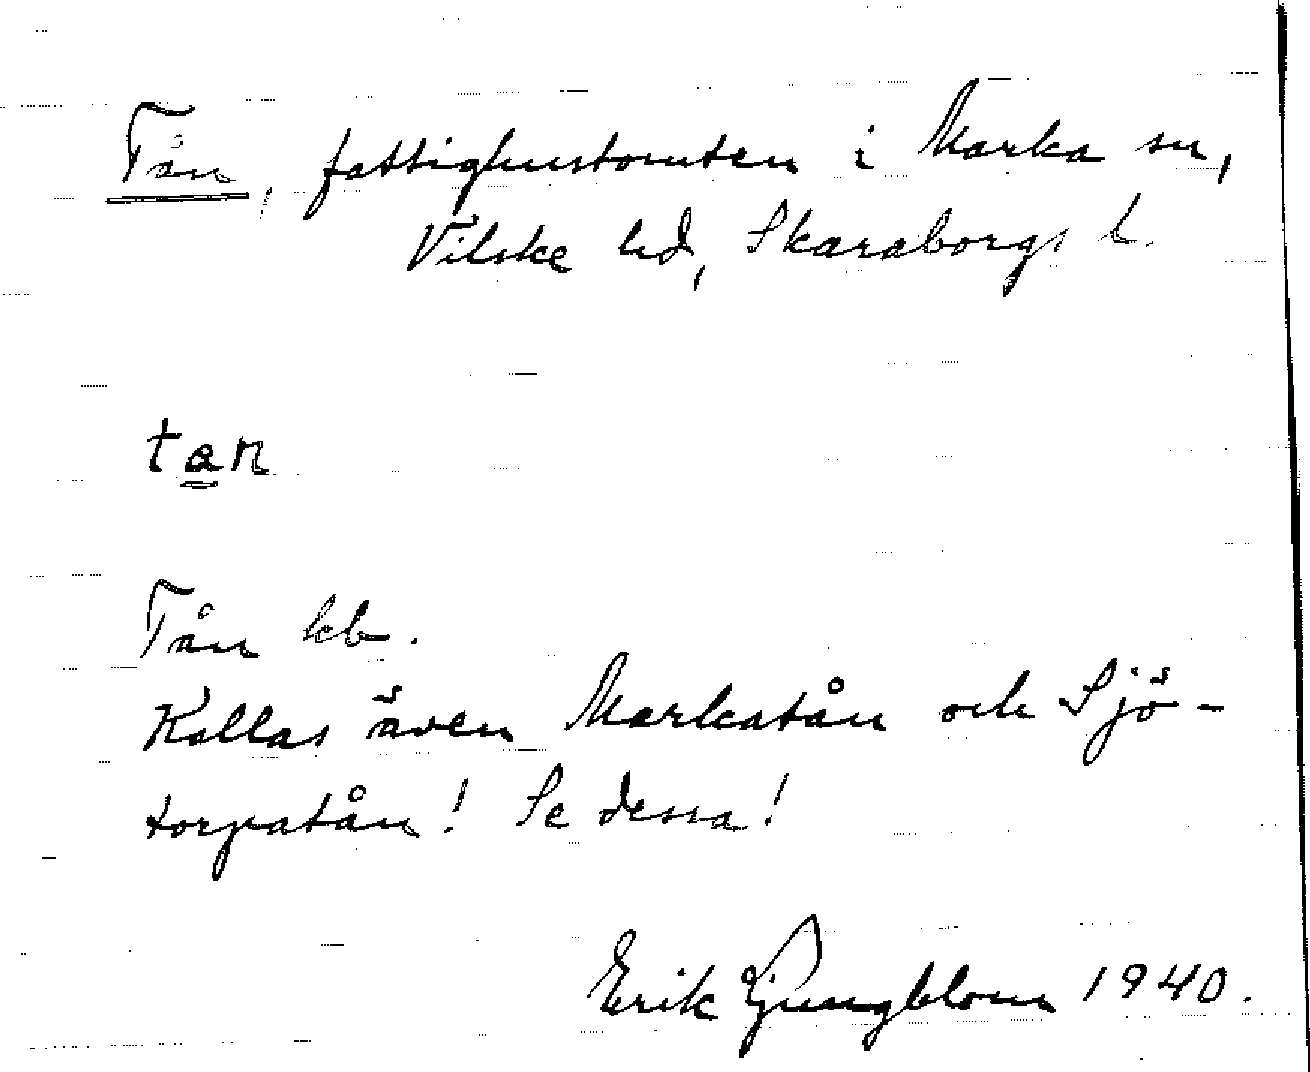 Tån, fattighustomten i Marka sn,
Vilske hd, Skaraborgs l.
tan
Tån kb.
Kallas även Markatån och Sjö-
torpatån! Se dessa!
Erik Ljungblom 1940.